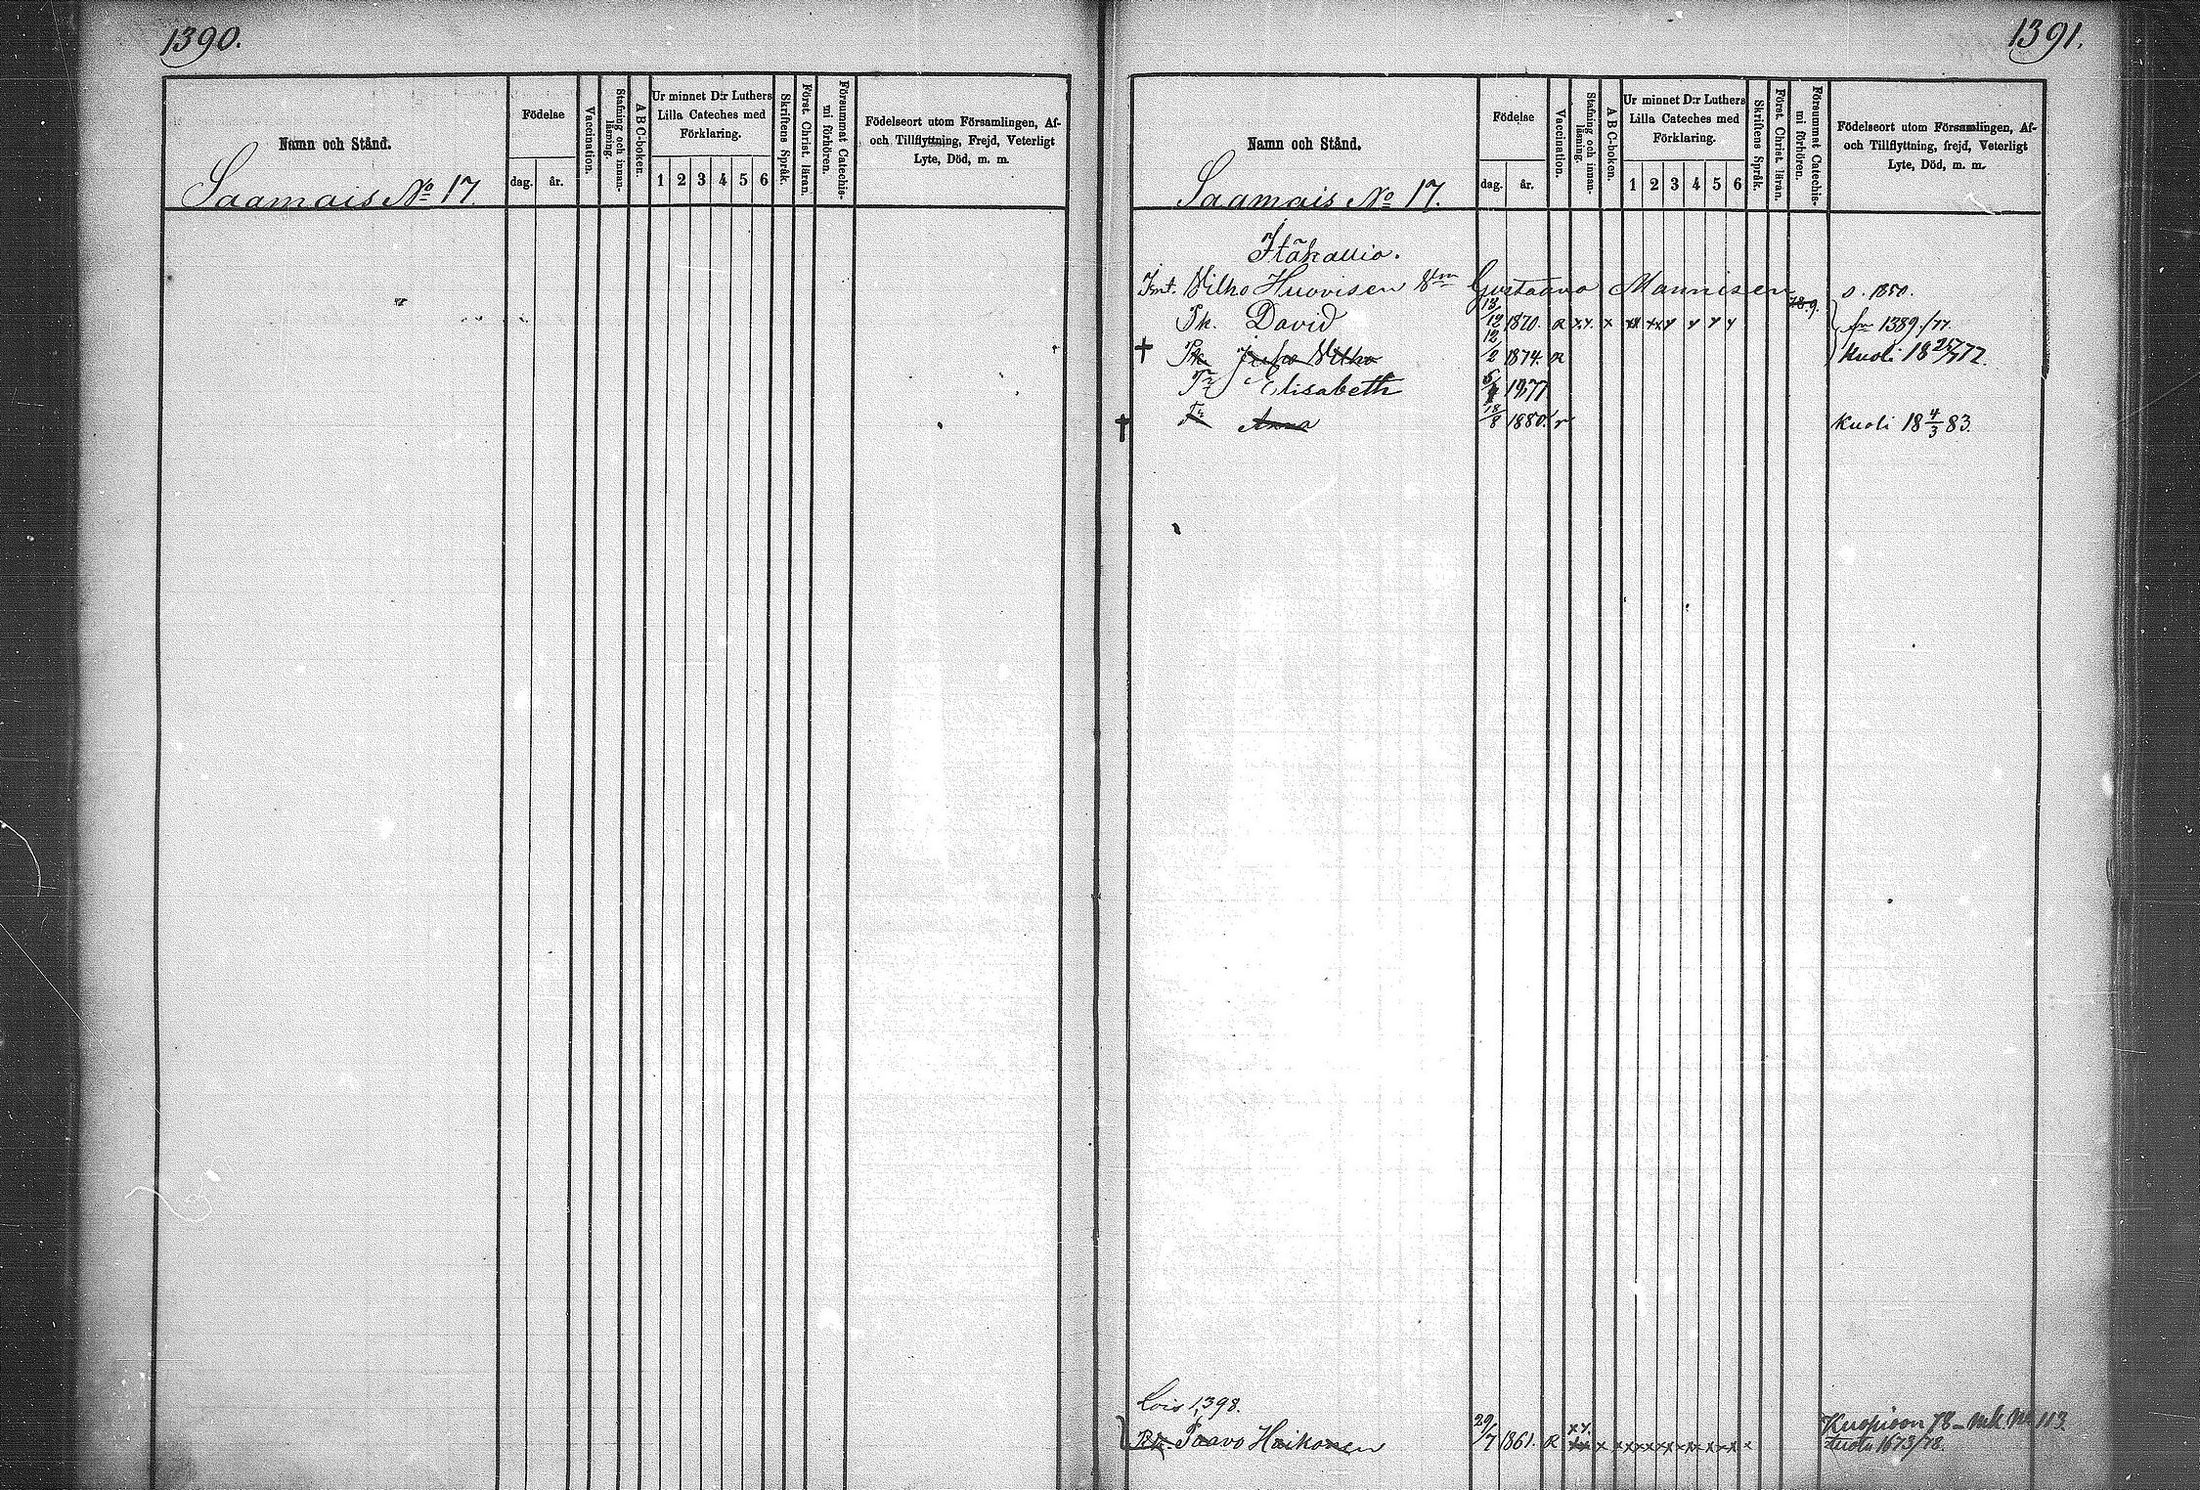 1390.
Namn och Stånd.
Saamais No 17.
Födelse
dag.
år.
Vaccination.
Stafning och innan-
läsning.
A B C-boken.
Ur minnet D:r Luthers
Lilla Cateches med
Förklaring.
1 2 3 4 5 6
Skriftens Språk.
Först. Christ. läran.
Försummat Catechis-
mi förhören.
Födelseort utom Församlingen, Af-
och Tillflyttning, Frejd, Veterligt
Lyte, Död, m. m.
1391.
Namn och Stånd.
Saamais No 17.
Födelse
dag.
år.
Vaccination.
Stafning och innan-
läsning.
A B C-boken.
Ur minnet D:r Luthers
Lilla Cateches med
Förklaring.
1 2 3 4 5 6
Skriftens Språk.
Först. Christ. läran.
Försummat Catechis-
mi förhören.
Födelseort utom Församlingen, Af-
och Tillflyttning, frejd, Veterligt
Lyte, Död, m. m.
Itäkallio.
Wilho Huovisen Gustaava Mannisen s. 1850.
Pk. David 13/12 1870. R x x x fm 1389./77.
† Pk. Wilho 12/2 1874. R Kuoli
Tr Elisabeth 1877
† Tr Anna 18/8 1880. r Kuoli 18 4/3 83.
Lois 1,398.
Paavo Haikonen 29/7 1861. R Kuopioon 78 - mk No 113.
1673/78.